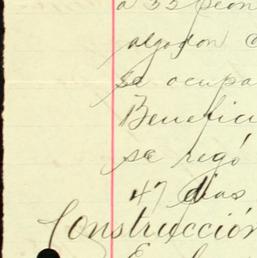 a 35 peon
algodon
se ocupa
Benefici
se regó
47 dias
Construcción